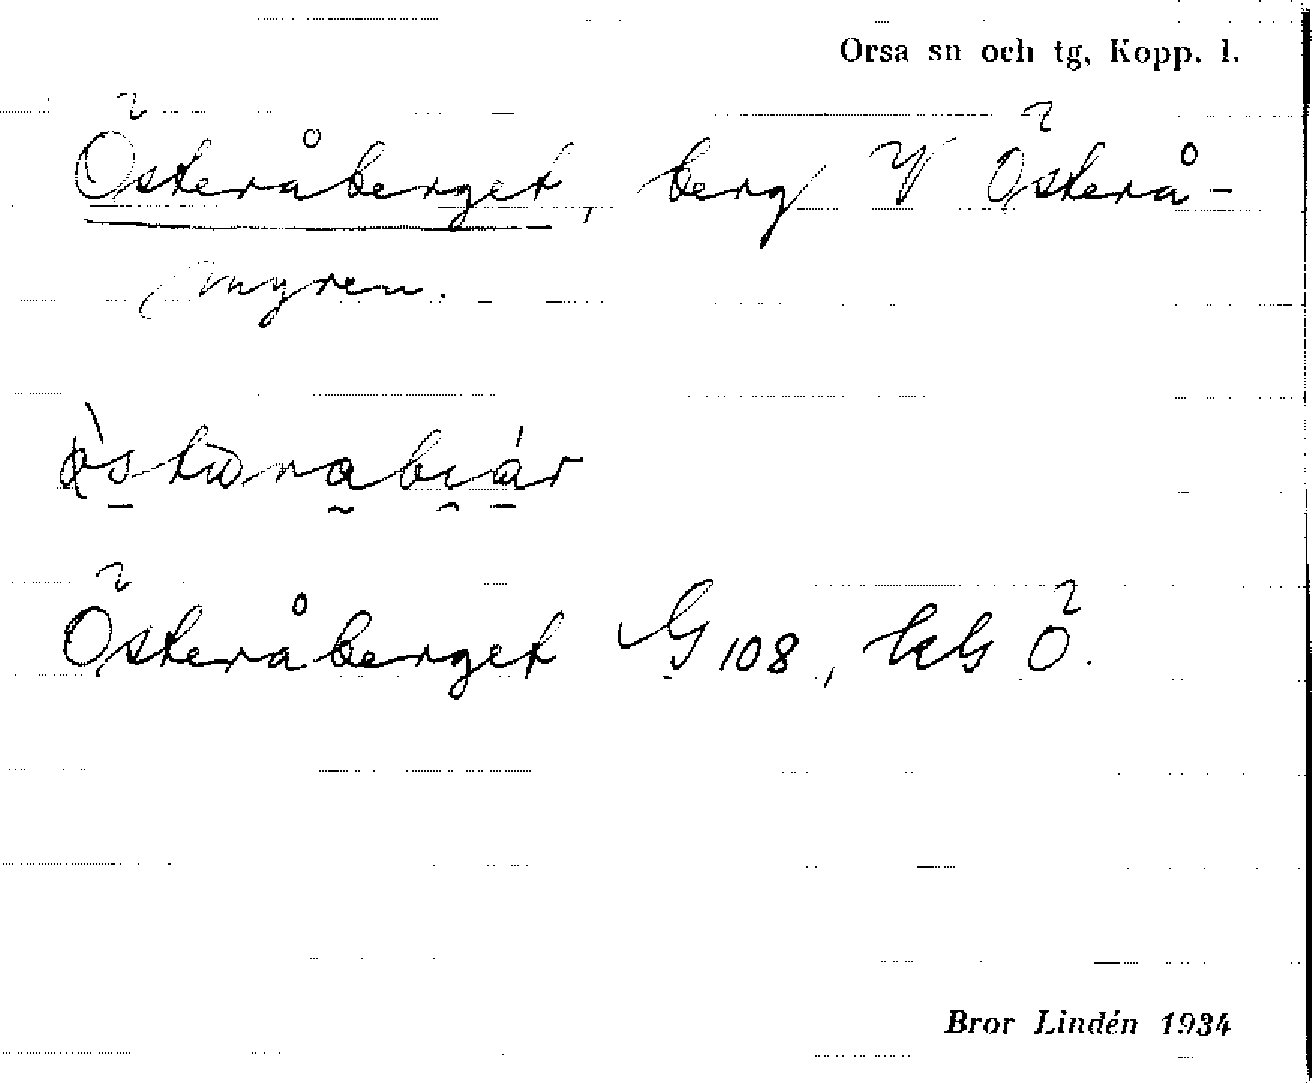 Orsa sn och tg, Kopp. l.
Österåberget, berg V Österå-
myren.
Österåberget G 108, bl Ö.
Bror Lindén 1934